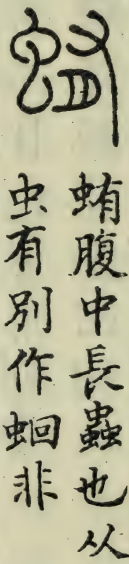 蛕
蛕腹中長蟲也从
虫有別作蛔非